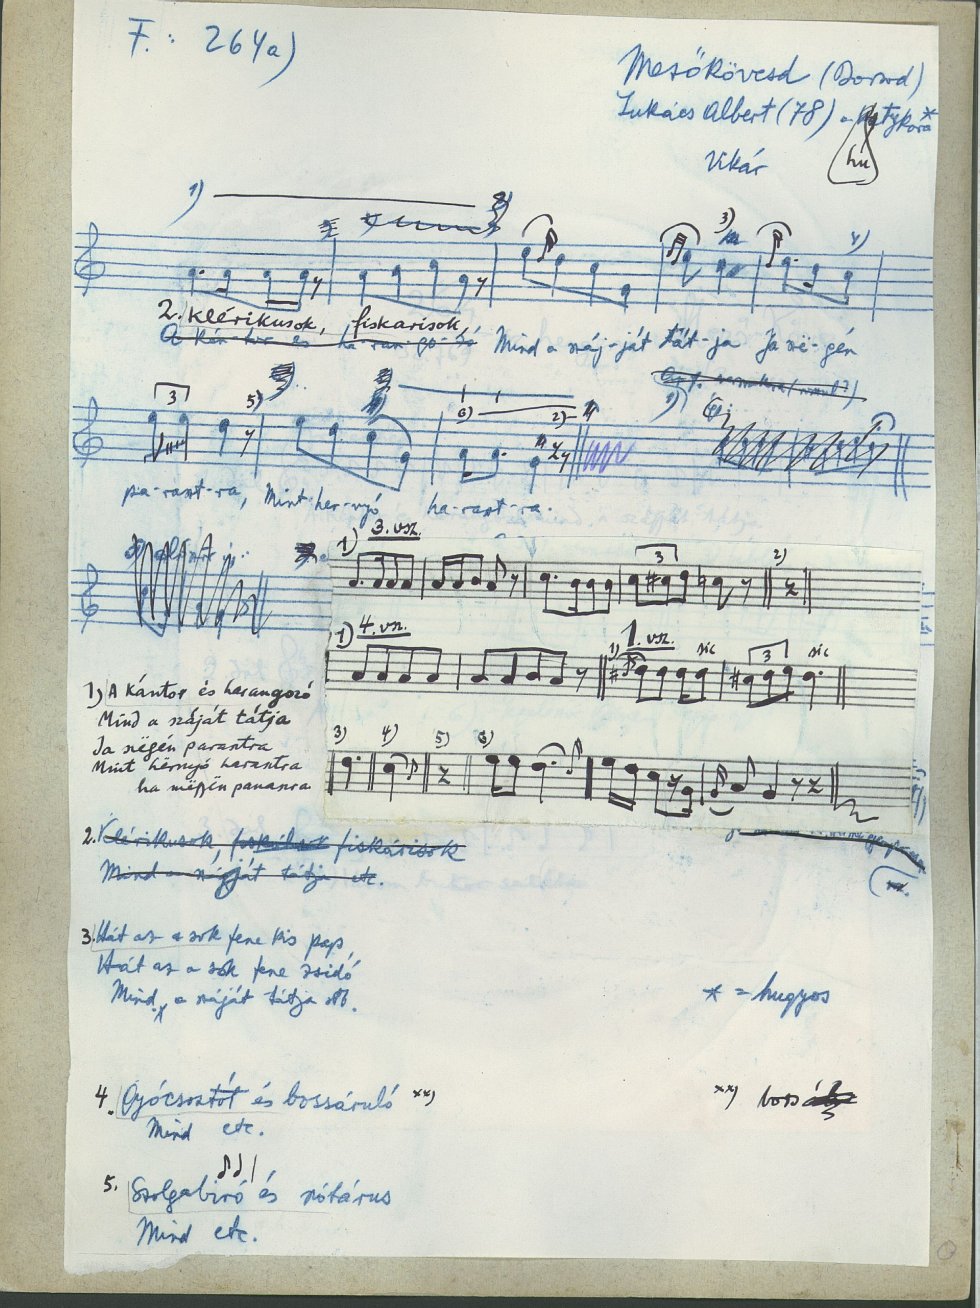 F.: 264a)
Mezőkövesd (Borsod)
Lukács Albert (78)
Vikár
1)
3)
2. klérikusok, fiskárisok,
A kán-tor és ha-ran-go-zó Mind a száj-ját tát-ja Ja szë-gén
3 5) 6) 2)
pa-raszt-ra, Mint her-nyó ha-raszt-ra.
1) 3. vsz. 3 2)
1) 4. vsz. 1. vsz. 1) sic 3 sic
3) 4) 5) 6)
1) A kántor és harangozó
Mind a száját tátja
Ja szëgén parasztra
Mint hërnyó harasztra
2. Klérikusok, fiskárisok
Mind a száját tátja etc.
3. Hát az a sok fene kis pap,
Hát az a sok fene zsidó
Mind a száját tátja stb.
* = hugyos
4. Gyócsostót és bossáruló xx)
xx)
Mind etc.
5. Szolgabiró és nótárus
Mind etc.